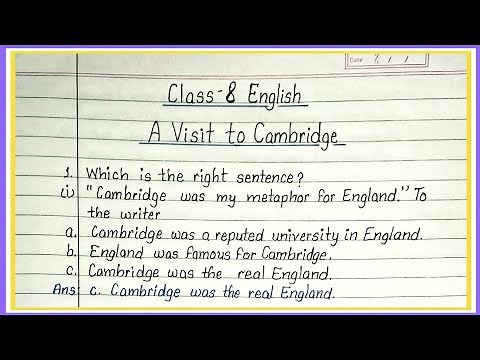 Date
Class-8 English
A Visit to Cambridge
1. Which is the right sentence?
(i) "Cambridge was my metaphor for England." To
the writer
a. Cambridge was a reputed university in England.
b. England was famous for Cambridge.
c. Cambridge was the real England.
Ans: c. Cambridge was the real England.